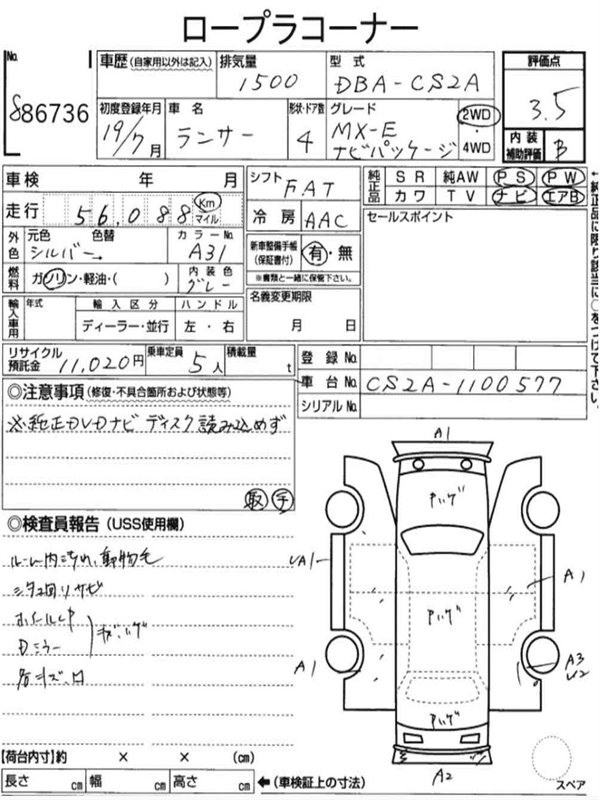 ロープラコーナー
No.
886736
車歴(自家用以外は記入) 排気量 1500 型式 DBA-CS2A 評価点 3.5
初度登録年月 19/7月 車名 ランサー 形状・ドア数 4 グレード MX-E ナビパッケージ 2WD・4WD 内装補助評価 B
車検 年 月 シフト FAT 純正品 SR 純AW PS PW
走行 56,088 Km マイル 冷房 AAC カワ TV ナビ エアB
外色 元色 シルバー 色替 → カラーNo. A31 新車整備手帳(保証書付) 有・無 ※書類と一緒に保管下さい。 セールスポイント
燃料 ガソリン・軽油・( ) 内装色 グレー
輸入車用 年式 輸入区分 ディーラー・並行 ハンドル 左・右 名義変更期限 月 日
リサイクル預託金 11,020円 乗車定員 5人 積載量 t 登録No.
車台No. CS2A-1100577
シリアルNo.
◎注意事項(修復・不具合箇所および状態等)
※純正DVDナビ ディスク読み込めず
取 手
◎検査員報告(USS使用欄)
ルーム内汚れ、動物毛
シタ回りサビ
ホイールCP
Dミラー
キズ、ハゲ
各キズ、凹
A1
ヤハゲ
UA1
A1
ヤハゲ
A1
A3
U2
ヤハゲ
A2
スペア
【荷台内寸】約 × × (cm)
長さ cm 幅 cm 高さ cm ←(車検証上の寸法)
←純正品に限り該当に○をつけて下さい。